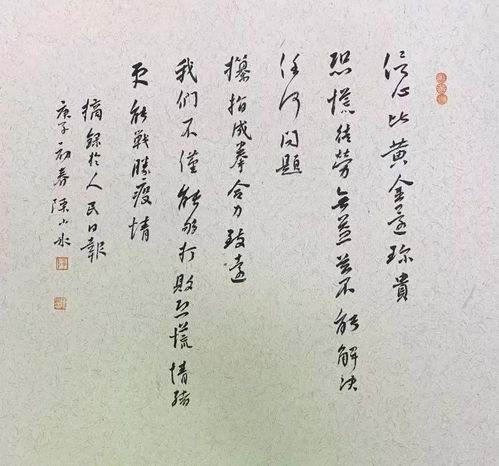 信心比黄金還珍貴
恐慌徒勞無益並不能解决
任何問題
攥指成拳合力致遠
我們不僅能够打敗恐慌情緒
更能戰勝疫情
摘錄於人民日報
庚子初春陳小水